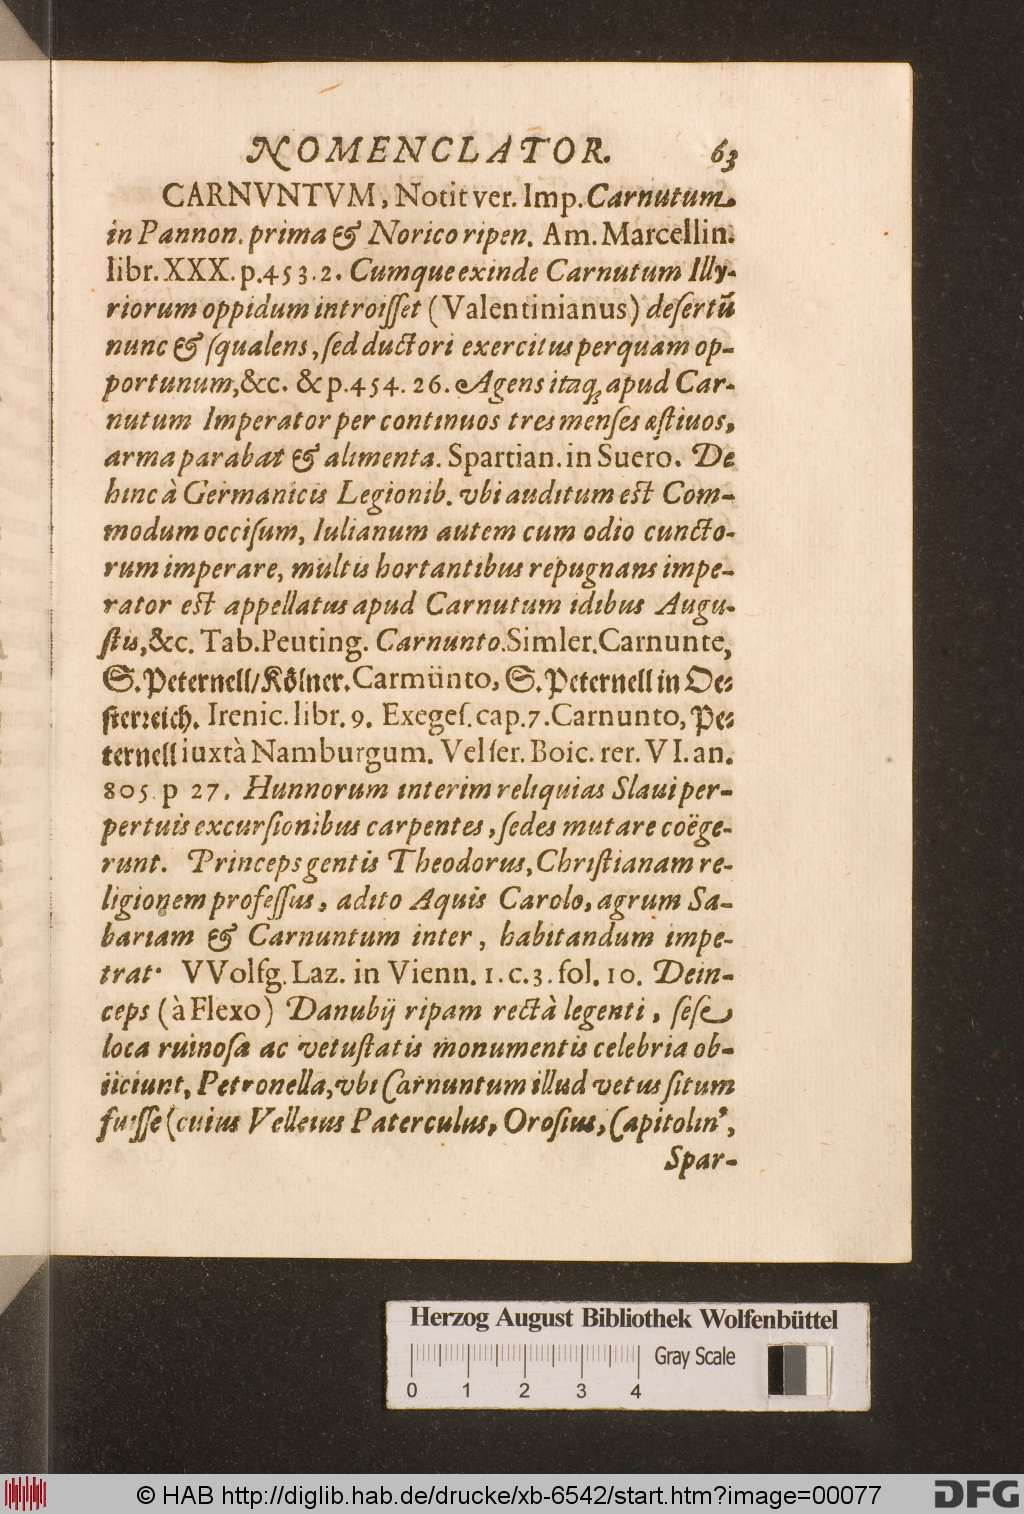 NOMENCLATOR. 63
CARNVNTVM, Notit ver. Imp. Carnutum
in Pannon. prima & Norico ripen. Am. Marcellin.
libr. XXX. p. 453. 2. Cumque exinde Carnutum Illy-
riorum oppidum introiſſet (Valentinianus) deſertũ
nunc & ſqualens, ſed ductori exercitus perquam op-
portunum, &c. & p. 454. 26. Agens itaq; apud Car-
nutum Imperator per continuos tres menſes æſtiuos,
arma parabat & alimenta. Spartian. in Suero. De
hinc à Germanicis Legionib. vbi auditum est Com-
modum occiſum, Iulianum autem cum odio cuncto-
rum imperare, multis hortantibus repugnans impe-
rator est appellatus apud Carnutum idibus Augu-
ſtis, &c. Tab. Peuting. Carnunto. Simler. Carnunte,
S. Peternell/ Kölner. Carmünto, S. Peternell in Oe-
ſterreich. Irenic. libr. 9. Exegeſ. cap. 7. Carnunto, Pe-
ternell iuxtà Namburgum. Velſer. Boic. rer. VI. an.
805. p 27. Hunnorum interim reliquias Slaui per-
pertuis excurſionibus carpentes, ſedes mutare coëge-
runt. Princeps gentis Theodorus, Chriſtianam re-
ligionem profeſſus, adito Aquis Carolo, agrum Sa-
bariam & Carnuntum inter, habitandum impe-
trat. VVolfg. Laz. in Vienn. 1. c. 3. fol. 10. Dein-
ceps (à Flexo) Danubij ripam rectà legenti, ſeſe
loca ruinoſa ac vetuſtatis monumentis celebria ob-
iiciunt, Petronella, vbi Carnuntum illud vetus ſitum
fuiſſe (cuius Velleius Paterculus, Oroſius, Capitolin⁹,
Spar-
Herzog August Bibliothek Wolfenbüttel
Gray Scale
0 1 2 3 4
© HAB http://diglib.hab.de/drucke/xb-6542/start.htm?image=00077
DFG